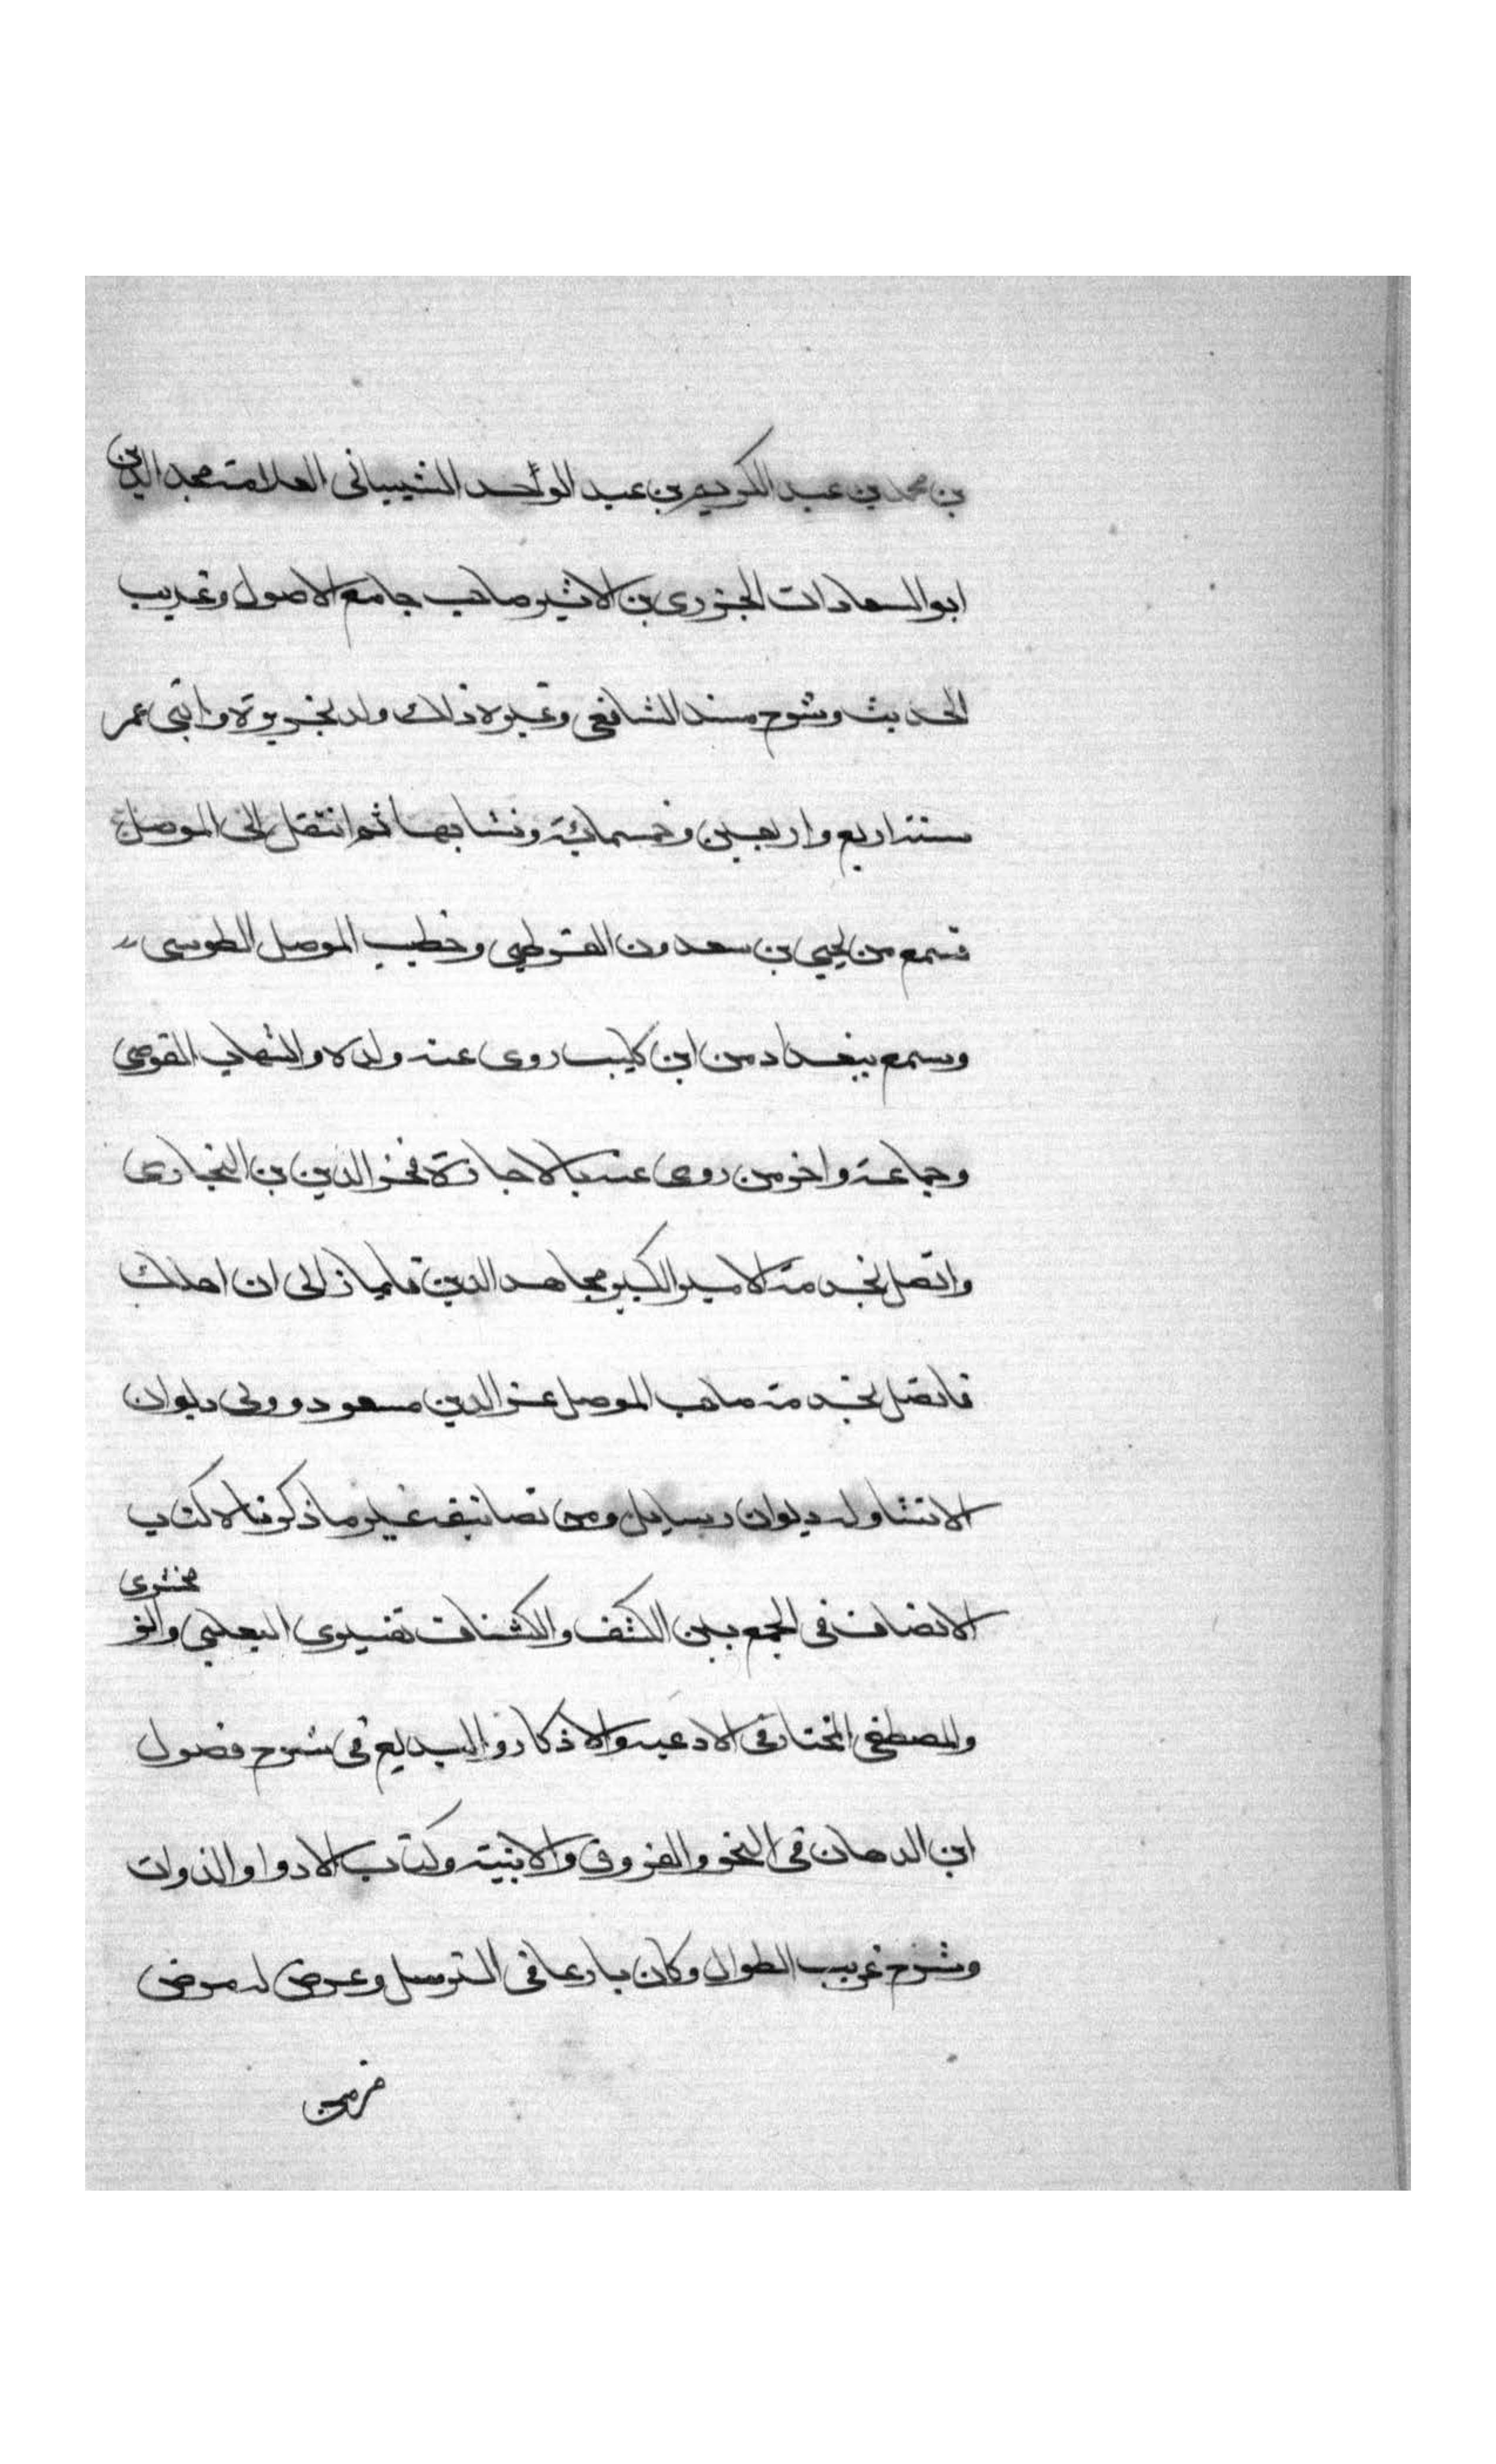 بن محمد بن عبد الكريم بن عبد الواحد الشيباني العلامة مجد الدين
ابو السعادات الجزرى بن الاثير صاحب جامع الاصول وغريب
الحديث وشرح مسند الشافعي وغيره ذلك ولد بجزيرة وابني عمر
سنة اربع واربعين وخمسماية ونشا بها ثم انتقل الى الموصل
فسمع من يحيى بن سعدون القرطبي وخطيب الموصل الطوسى
وسمع ببغداد من ابن كليب روى عنه ولده والشهاب القوصى
وجماعة واخر من روى عنه بالاجازة فخر الدين بن البخارى
واتصل بخدمة الامير الكبير مجاهد الدين قايماز الى ان اهلك
فاتصل بخدمة صاحب الموصل عز الدين مسعود وولى ديوان
الانشا وله ديوان رسايل ومن تصانيفه غير ما ذكرناه كتاب
الانصاف فى الجمع بين الكشف والكشاف تفسيرى الثعلبي والز
مخشرى
والمصطفى المختار فى الادعيه والاذكار والبديع فى شرح فصول
ابن الدهان فى النحو والفروق والابنية وكتاب الادوا والذوات
وشرح غريب الطوال وكان بارعا فى الترسل وعرض له مرض
مزمن